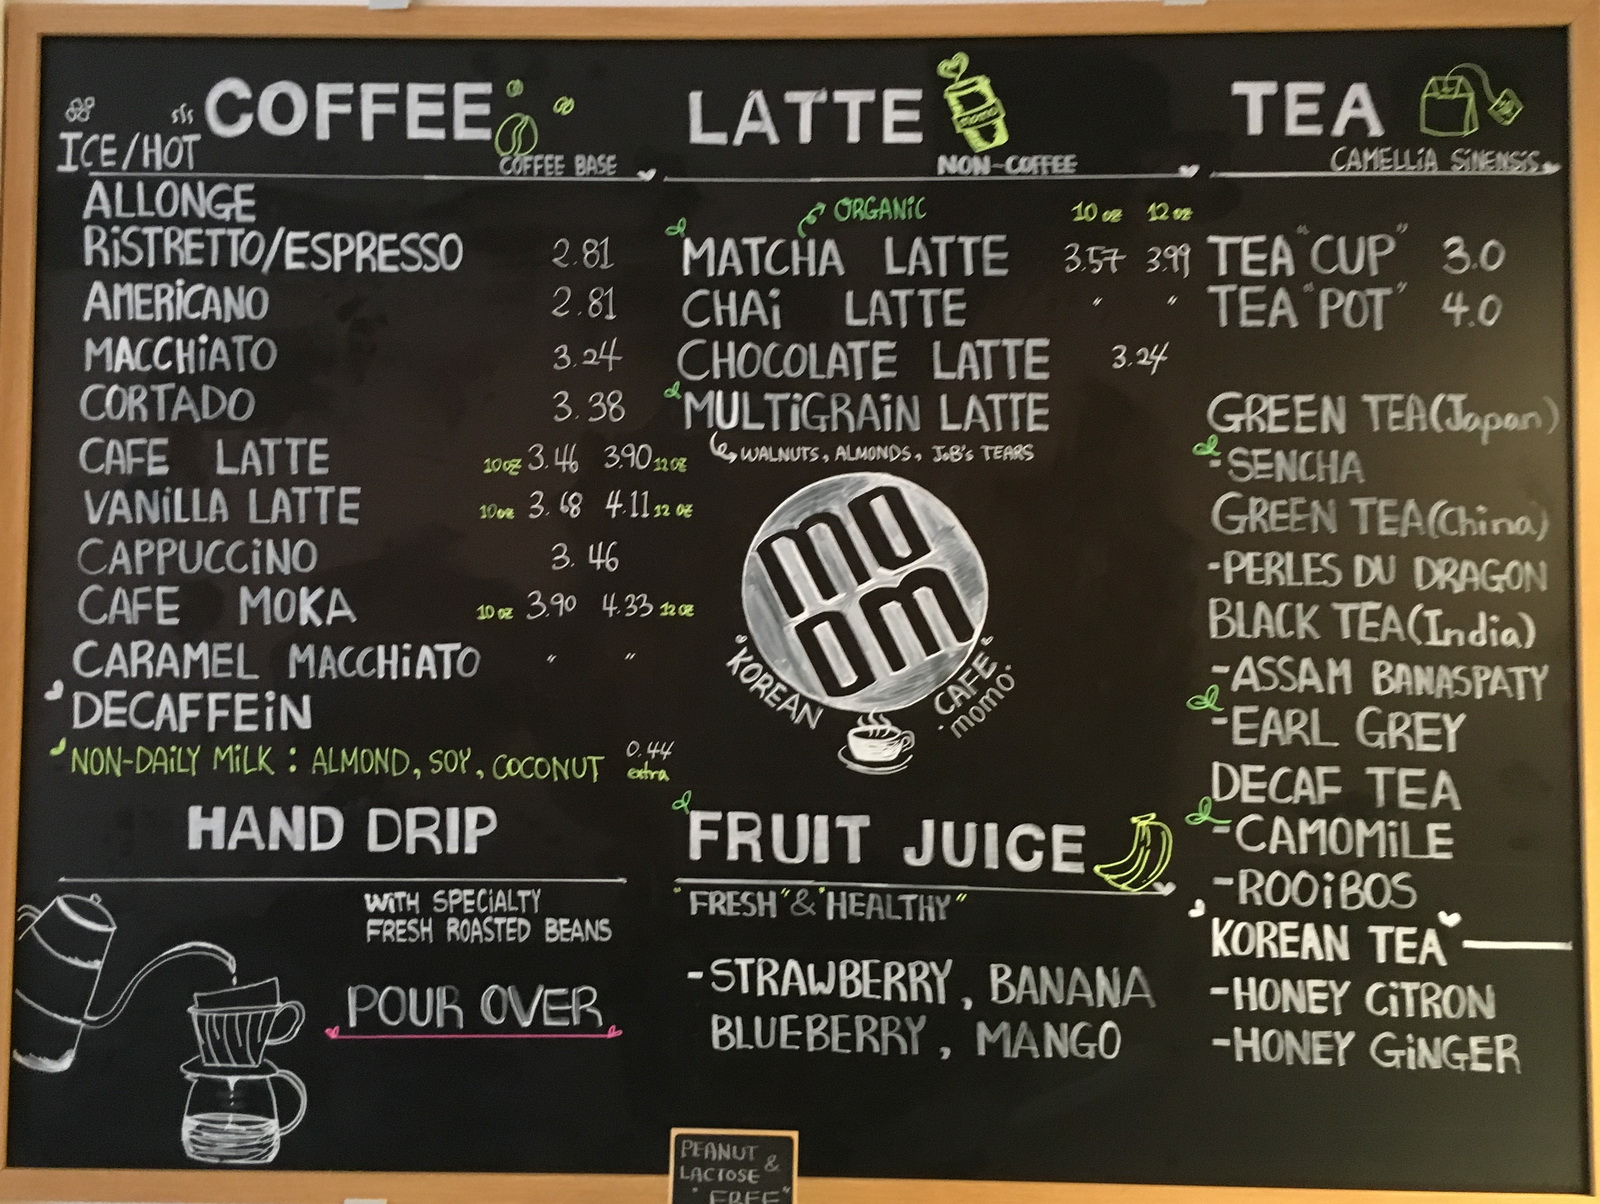 COFFEE
ICE/HOT
COFFEE BASE
ALLONGE
RiSTRETTO/ESPRESSO 2.81
AMERiCANO 2.81
MACCHiATO 3.24
CORTADO 3.38
CAFE LATTE 10oz 3.46 3.90 12oz
VANiLLA LATTE 10oz 3.68 4.11 12oz
CAPPUCCiNO 3.46
CAFE MOKA 10oz 3.90 4.33 12oz
CARAMEL MACCHiATO " "
DECAFFEiN
NON-DAiLY MiLK : ALMOND, SOY, COCONUT 0.44 extra
HAND DRIP
WiTH SPECiALTY
FRESH ROASTED BEANS
POUR OVER
LATTE
momo
NON-COFFEE
ORGANiC 10oz 12oz
MATCHA LATTE 3.57 3.99
CHAi LATTE " "
CHOCOLATE LATTE 3.24
MULTiGRAiN LATTE
WALNUTS, ALMONDS, JoB's TEARS
mo
om
"KOREAN CAFE"
momo
FRUIT JUICE
"FRESH" & "HEALTHY"
-STRAWBERRY, BANANA
BLUEBERRY, MANGO
TEA
CAMELLiA SiNENSiS
TEA "CUP" 3.0
TEA "POT" 4.0
GREEN TEA(Japan)
-SENCHA
GREEN TEA(China)
-PERLES DU DRAGON
BLACK TEA(India)
-ASSAM BANASPATY
-EARL GREY
DECAF TEA
-CAMOMiLE
-ROOiBOS
KOREAN TEA
-HONEY CiTRON
-HONEY GiNGER
PEANUT &
LACTOSE
"FREE"